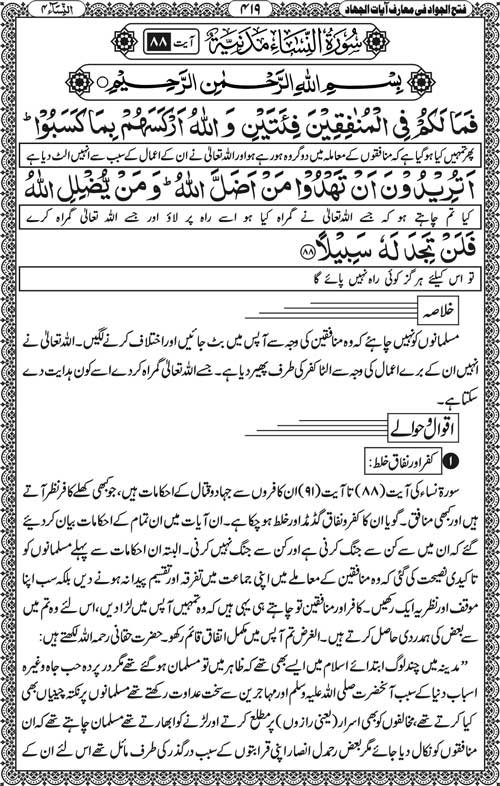 فتح الجواد فی معارف آیات الجهاد ۴۱۹ النساء ۴
سُورَةُ النِّسَاءِ مَدَنِيَّةٌ آیت ۸۸
بِسْمِ اللهِ الرَّحْمٰنِ الرَّحِيْمِ
فَمَا لَكُمْ فِي الْمُنٰفِقِيْنَ فِئَتَيْنِ وَ اللهُ اَرْكَسَهُمْ بِمَا كَسَبُوْا ؕ
پھر تمہیں کیا ہو گیا ہے کہ منافقوں کے معاملہ میں دو گروہ ہو رہے ہو اور اللہ تعالیٰ نے ان کے اعمال کے سبب سے انہیں الٹ دیا ہے
اَتُرِيْدُوْنَ اَنْ تَهْدُوْا مَنْ اَضَلَّ اللهُ ؕ وَ مَنْ يُّضْلِلِ اللهُ
کیا تم چاہتے ہو کہ جسے اللہ تعالیٰ نے گمراہ کیا ہو اسے راہ پر لاؤ اور جسے اللہ تعالیٰ گمراہ کرے
فَلَنْ تَجِدَ لَهٗ سَبِيْلًا ۸۸
تو اس کیلئے ہرگز کوئی راہ نہیں پائے گا
خلاصہ
مسلمانوں کو نہیں چاہئے کہ وہ منافقین کی وجہ سے آپس میں بٹ جائیں اور اختلاف کرنے لگیں۔ اللہ تعالیٰ نے
انہیں ان کے برے اعمال کی وجہ سے الٹا کفر کی طرف پھیر دیا ہے۔ جسے اللہ تعالیٰ گمراہ کر دے اسے کون ہدایت دے
سکتا ہے۔
اقوال و حوالے
۱ کفر اور نفاق خلط:
سورۃ نساء کی آیت (۸۸) تا آیت (۹۱) ان کافروں سے جہاد و قتال کے احکامات ہیں، جو کبھی کھلے کافر نظر آتے
ہیں اور کبھی منافق۔ گویا ان کا کفر و نفاق گڈمڈ اور خلط ہو چکا ہے۔ ان آیات میں ان تمام کے احکامات بیان کر دیئے
گئے کہ ان میں سے کن سے جنگ کرنی ہے اور کن سے جنگ نہیں کرنی۔ البتہ ان احکامات سے پہلے مسلمانوں کو
تاکیدی نصیحت کی گئی کہ وہ منافقین کے معاملے میں اپنی جماعت میں تفرقہ اور تقسیم پیدا نہ ہونے دیں بلکہ سب اپنا
موقف اور نظریہ ایک رکھیں۔ کافر اور منافقین تو چاہتے ہی یہی ہیں کہ وہ تمہیں آپس میں لڑا دیں، اس لئے وہ تم میں
سے بعض کی ہمدردی حاصل کرتے ہیں۔ الغرض تم آپس میں مکمل اتفاق قائم رکھو۔ حضرت حقانی رحمہ اللہ لکھتے ہیں:
”مدینہ میں چند لوگ ابتدائے اسلام میں ایسے بھی تھے کہ ظاہر میں تو مسلمان ہو گئے تھے مگر در پردہ حب جاہ وغیرہ
اسباب دنیا کے سبب آنحضرت صلی اللہ علیہ وسلم اور مہاجرین سے سخت عداوت رکھتے تھے مسلمانوں پر نکتہ چینیاں بھی
کیا کرتے تھے، مخالفوں کو بھی اسرار (یعنی رازوں) پر مطلع کرتے اور لڑنے کو ابھارتے تھے مسلمان چاہتے تھے کہ ان
منافقوں کو نکال دیا جائے مگر بعض رحمدل انصار اپنی قرابتوں کے سبب درگذر کی طرف مائل تھے اس لئے ان کے